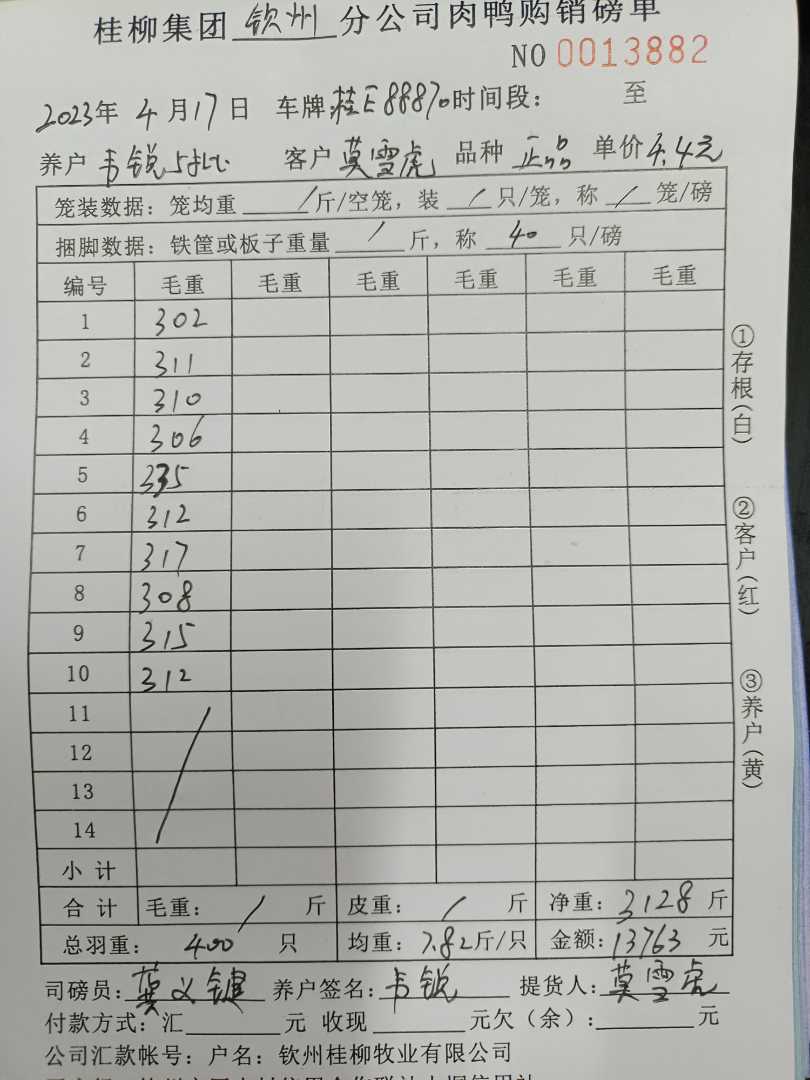 桂柳集团 钦州 分公司肉鸭购销磅单
NO 0013882
2023年 4月17日 车牌:桂E88870 时间段: 至
养户 韦锐 客户 莫雪虎 品种 正品 单价 4.4元
笼装数据: 笼均重 / 斤/空笼, 装 / 只/笼, 称 / 笼/磅
捆脚数据: 铁筐或板子重量 / 斤, 称 40 只/磅
编号 毛重 毛重 毛重 毛重 毛重 毛重
1 302
2 311
3 310
4 306
5 335
6 312
7 317
8 308
9 315
10 312
11
12
13
14
小 计
合 计 毛重: / 斤 皮重: / 斤 净重: 3128 斤
总羽重: 400 只 均重: 7.82斤/只 金额: 13763 元
司磅员: 莫义键 养户签名: 韦锐 提货人: 莫雪虎
付款方式: 汇 元 收现 元欠(余): 元
公司汇款帐号: 户名: 钦州桂柳牧业有限公司
①存根(白)
②客户(红)
③养户(黄)